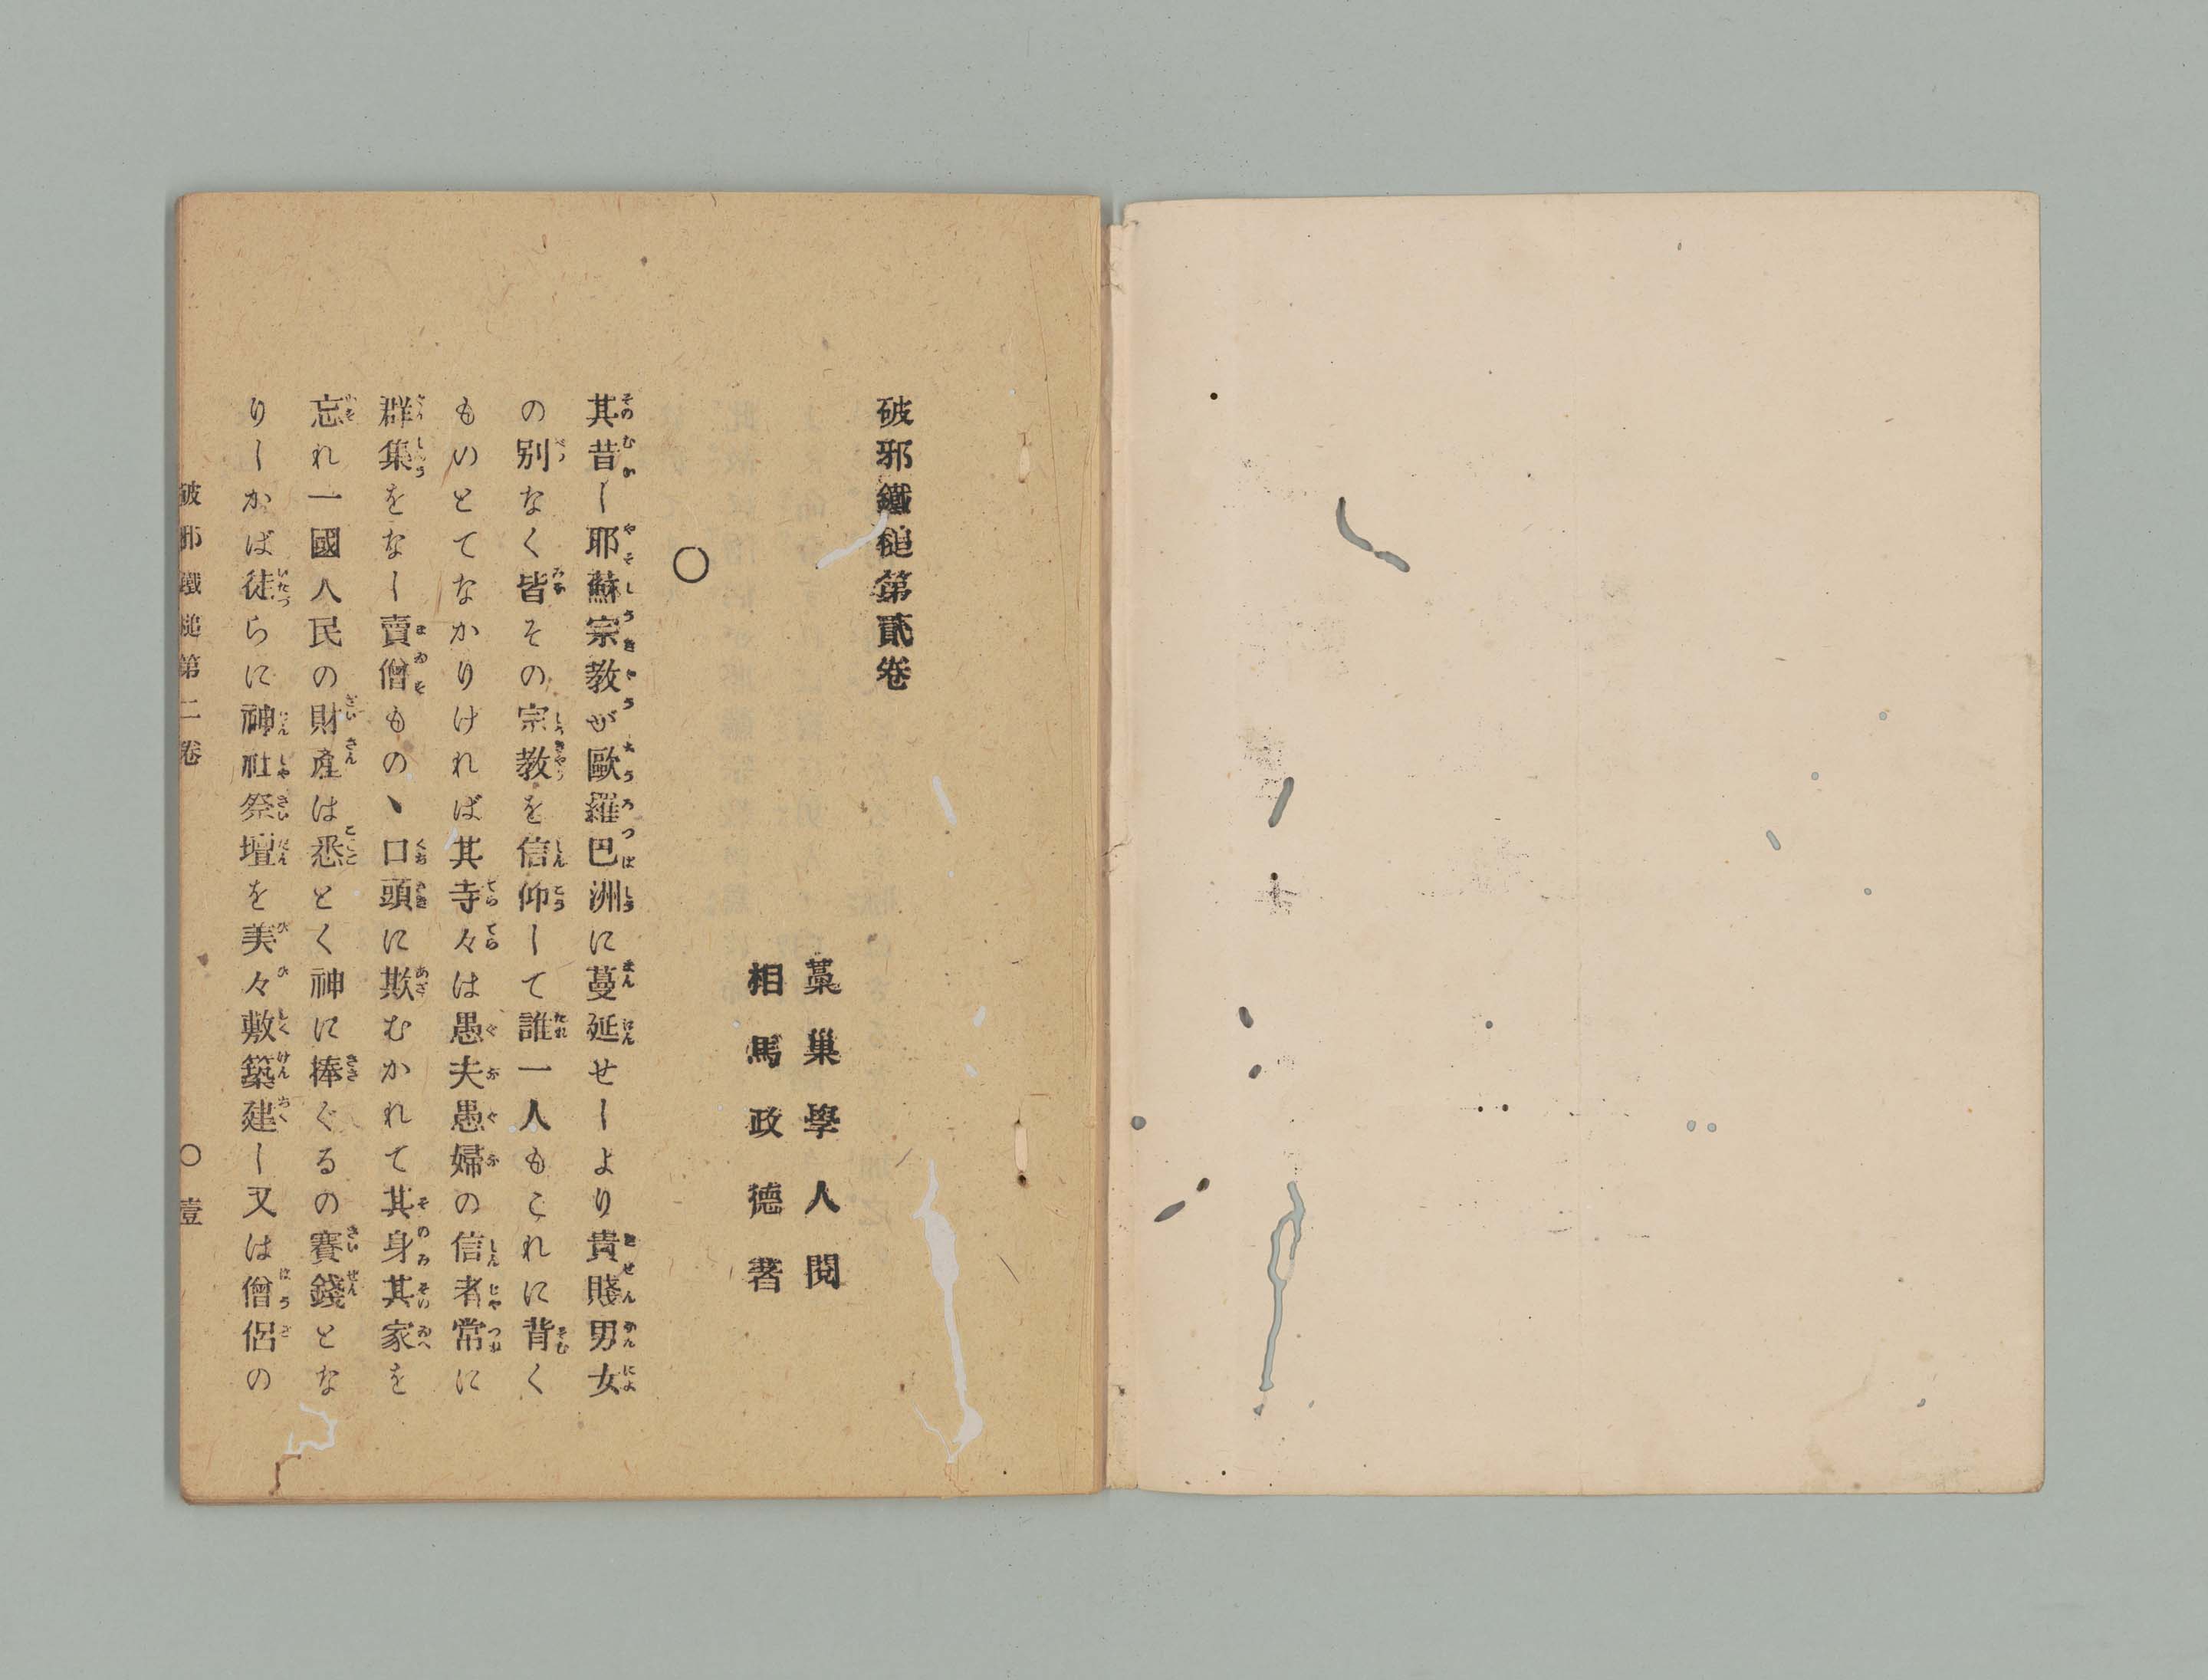 破邪鐵槌第貳卷
藁巢學人閱
相馬政德著
〇
其昔し耶蘇宗教が歐羅巴洲に蔓延せしより貴賤男女
の別なく皆その宗教を信仰して誰一人もこれに背く
ものとてなかりければ其寺々は愚夫愚婦の信者常に
群集をなし賣僧ものヽ口頭に欺むかれて其身其家を
忘れ一國人民の財產は悉とく神に捧ぐるの賽錢とな
りしかば徒らに神社祭壇を美々敷築建し又は僧侶の
破邪鐵槌第二卷 〇壹